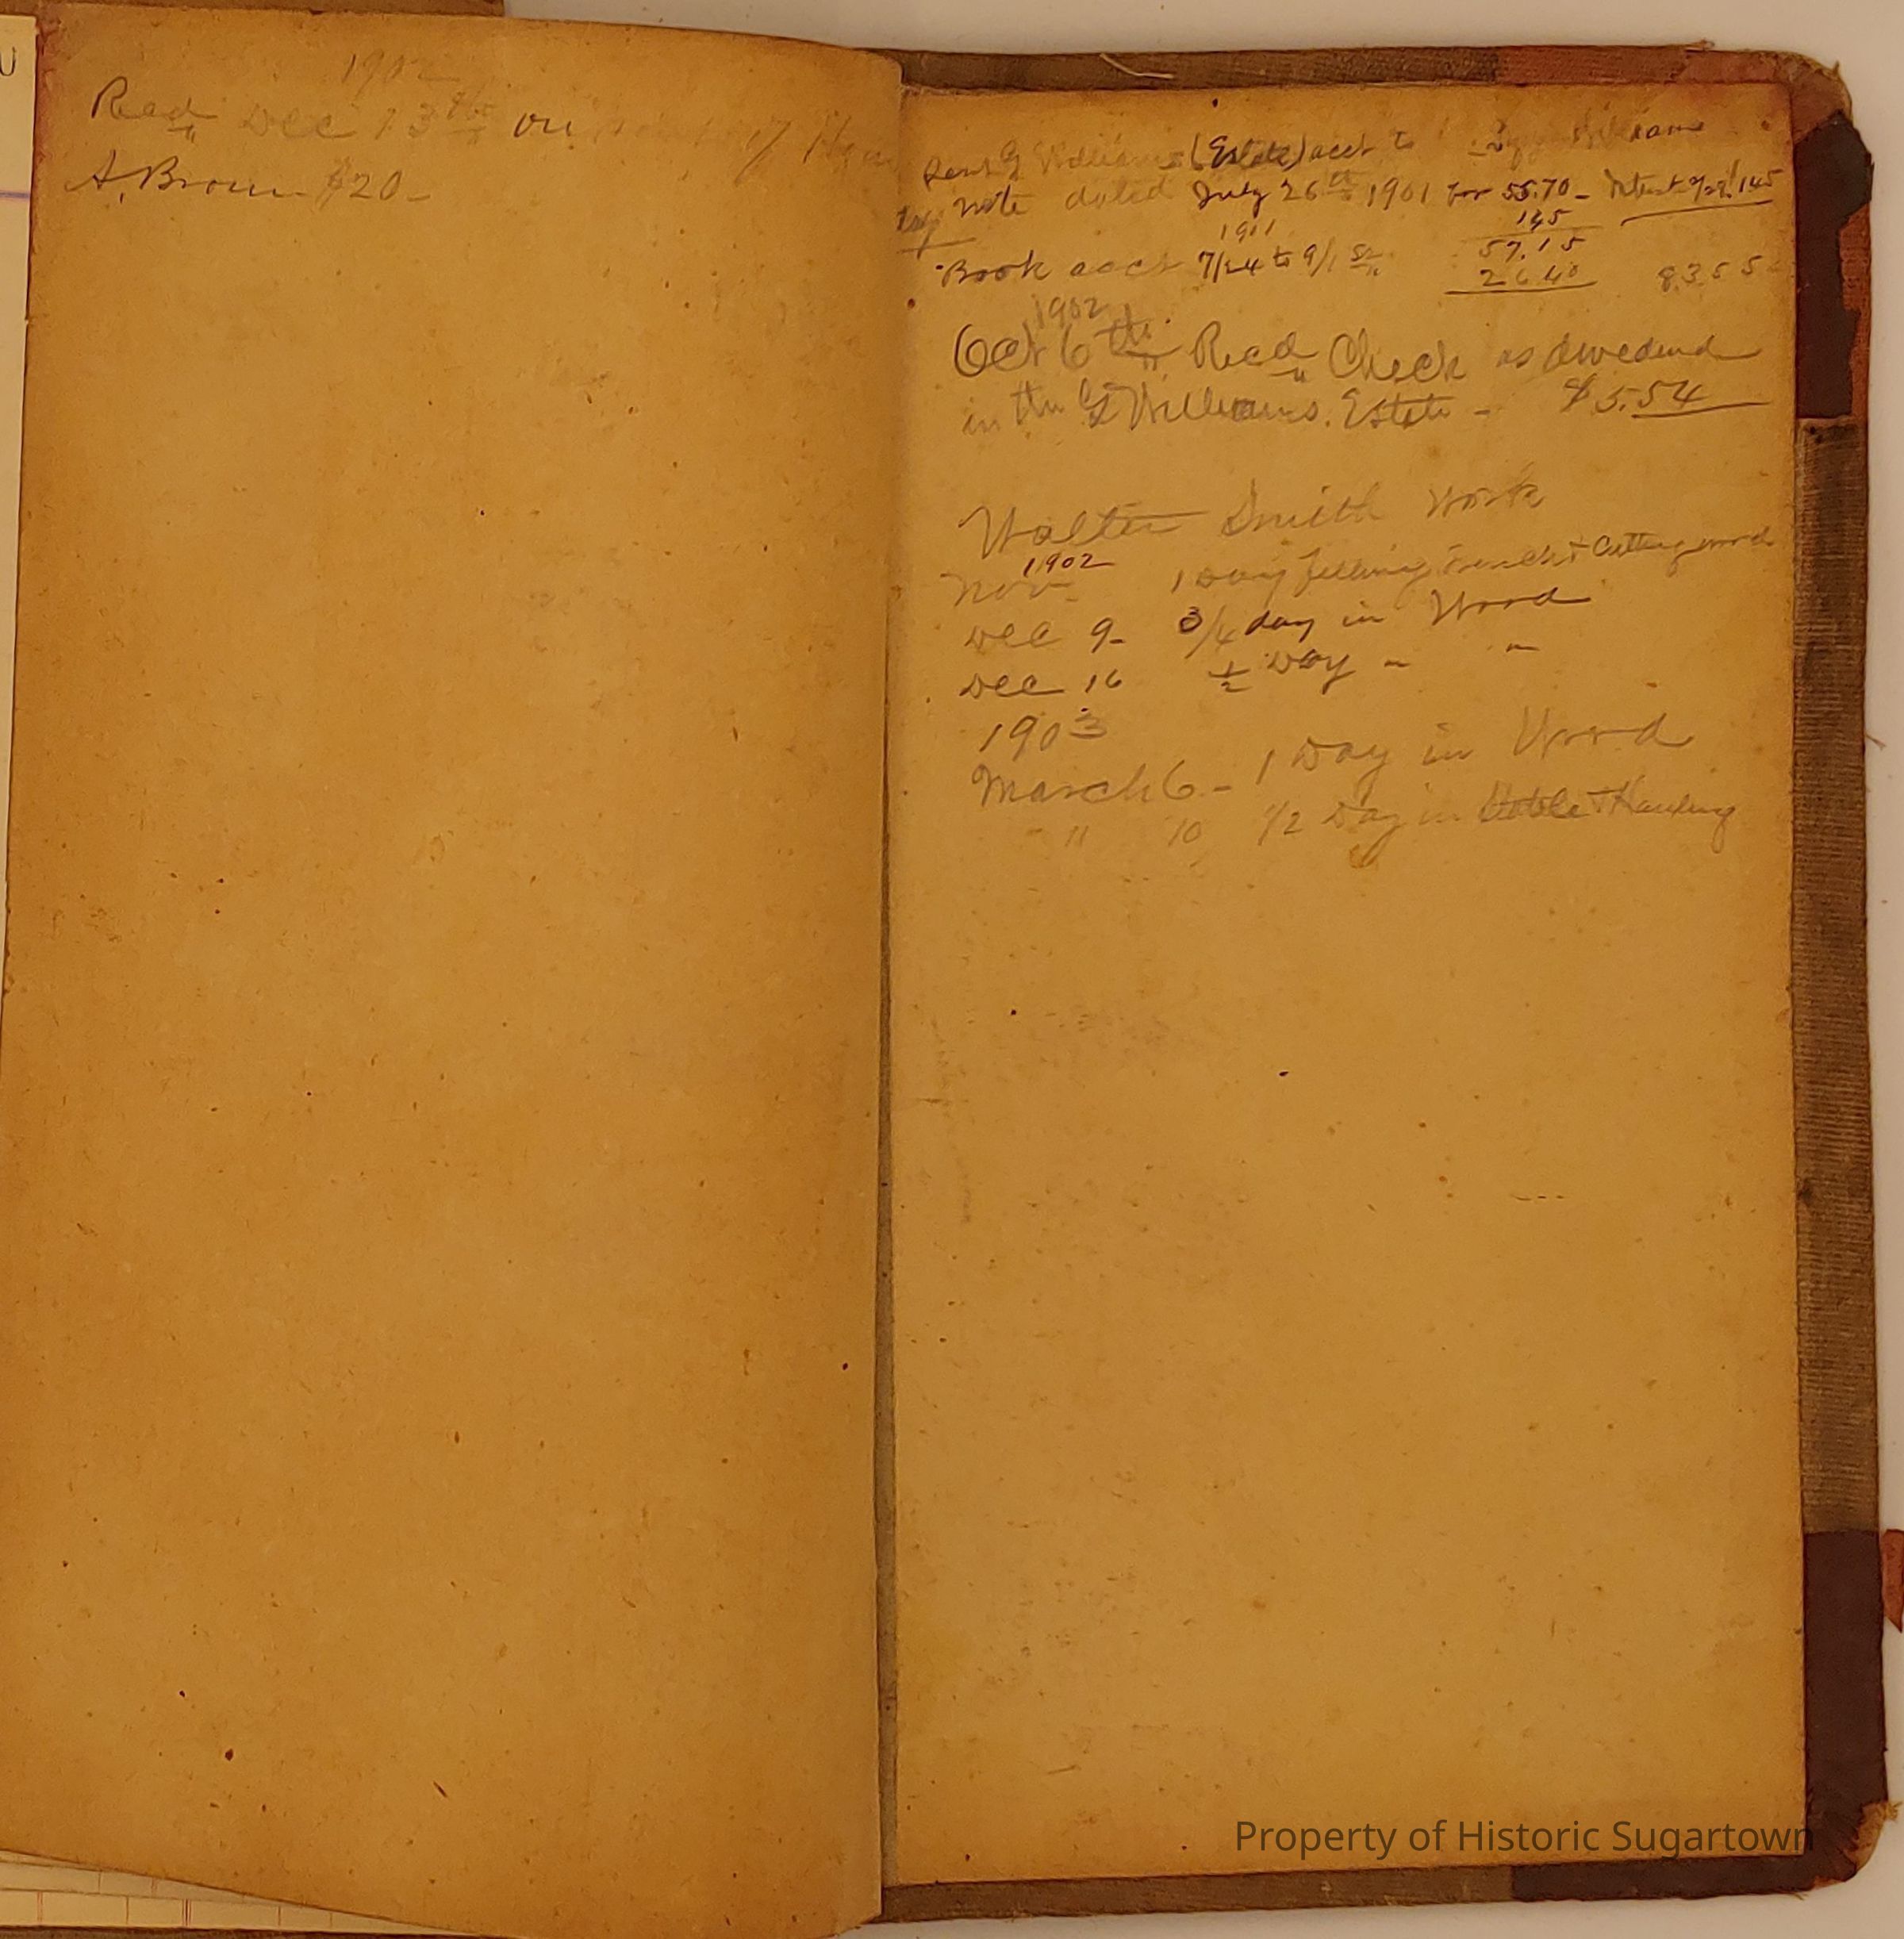 1902
Recd Dec 13th on of
A. Brown $20-
G Williams (Estate) acct to
Note dated July 26th 1901 for 55.70 - Interest 145
145
1901
57.15
Book acct 7/24 to 9/1st 26 40 83 55
1902
Oct 6th Recd Check as dividend
in the G Williams. Estate - $5.54
Walter Smith Work
1902
Nov- 1 Day filling & Cutting wood
Dec 9- 3/4 day in Wood
Dec 16 1/2 Day " "
1903
March 6 - 1 Day in Wood
" 10 1/2 Day in Hauling
Property of Historic Sugartown